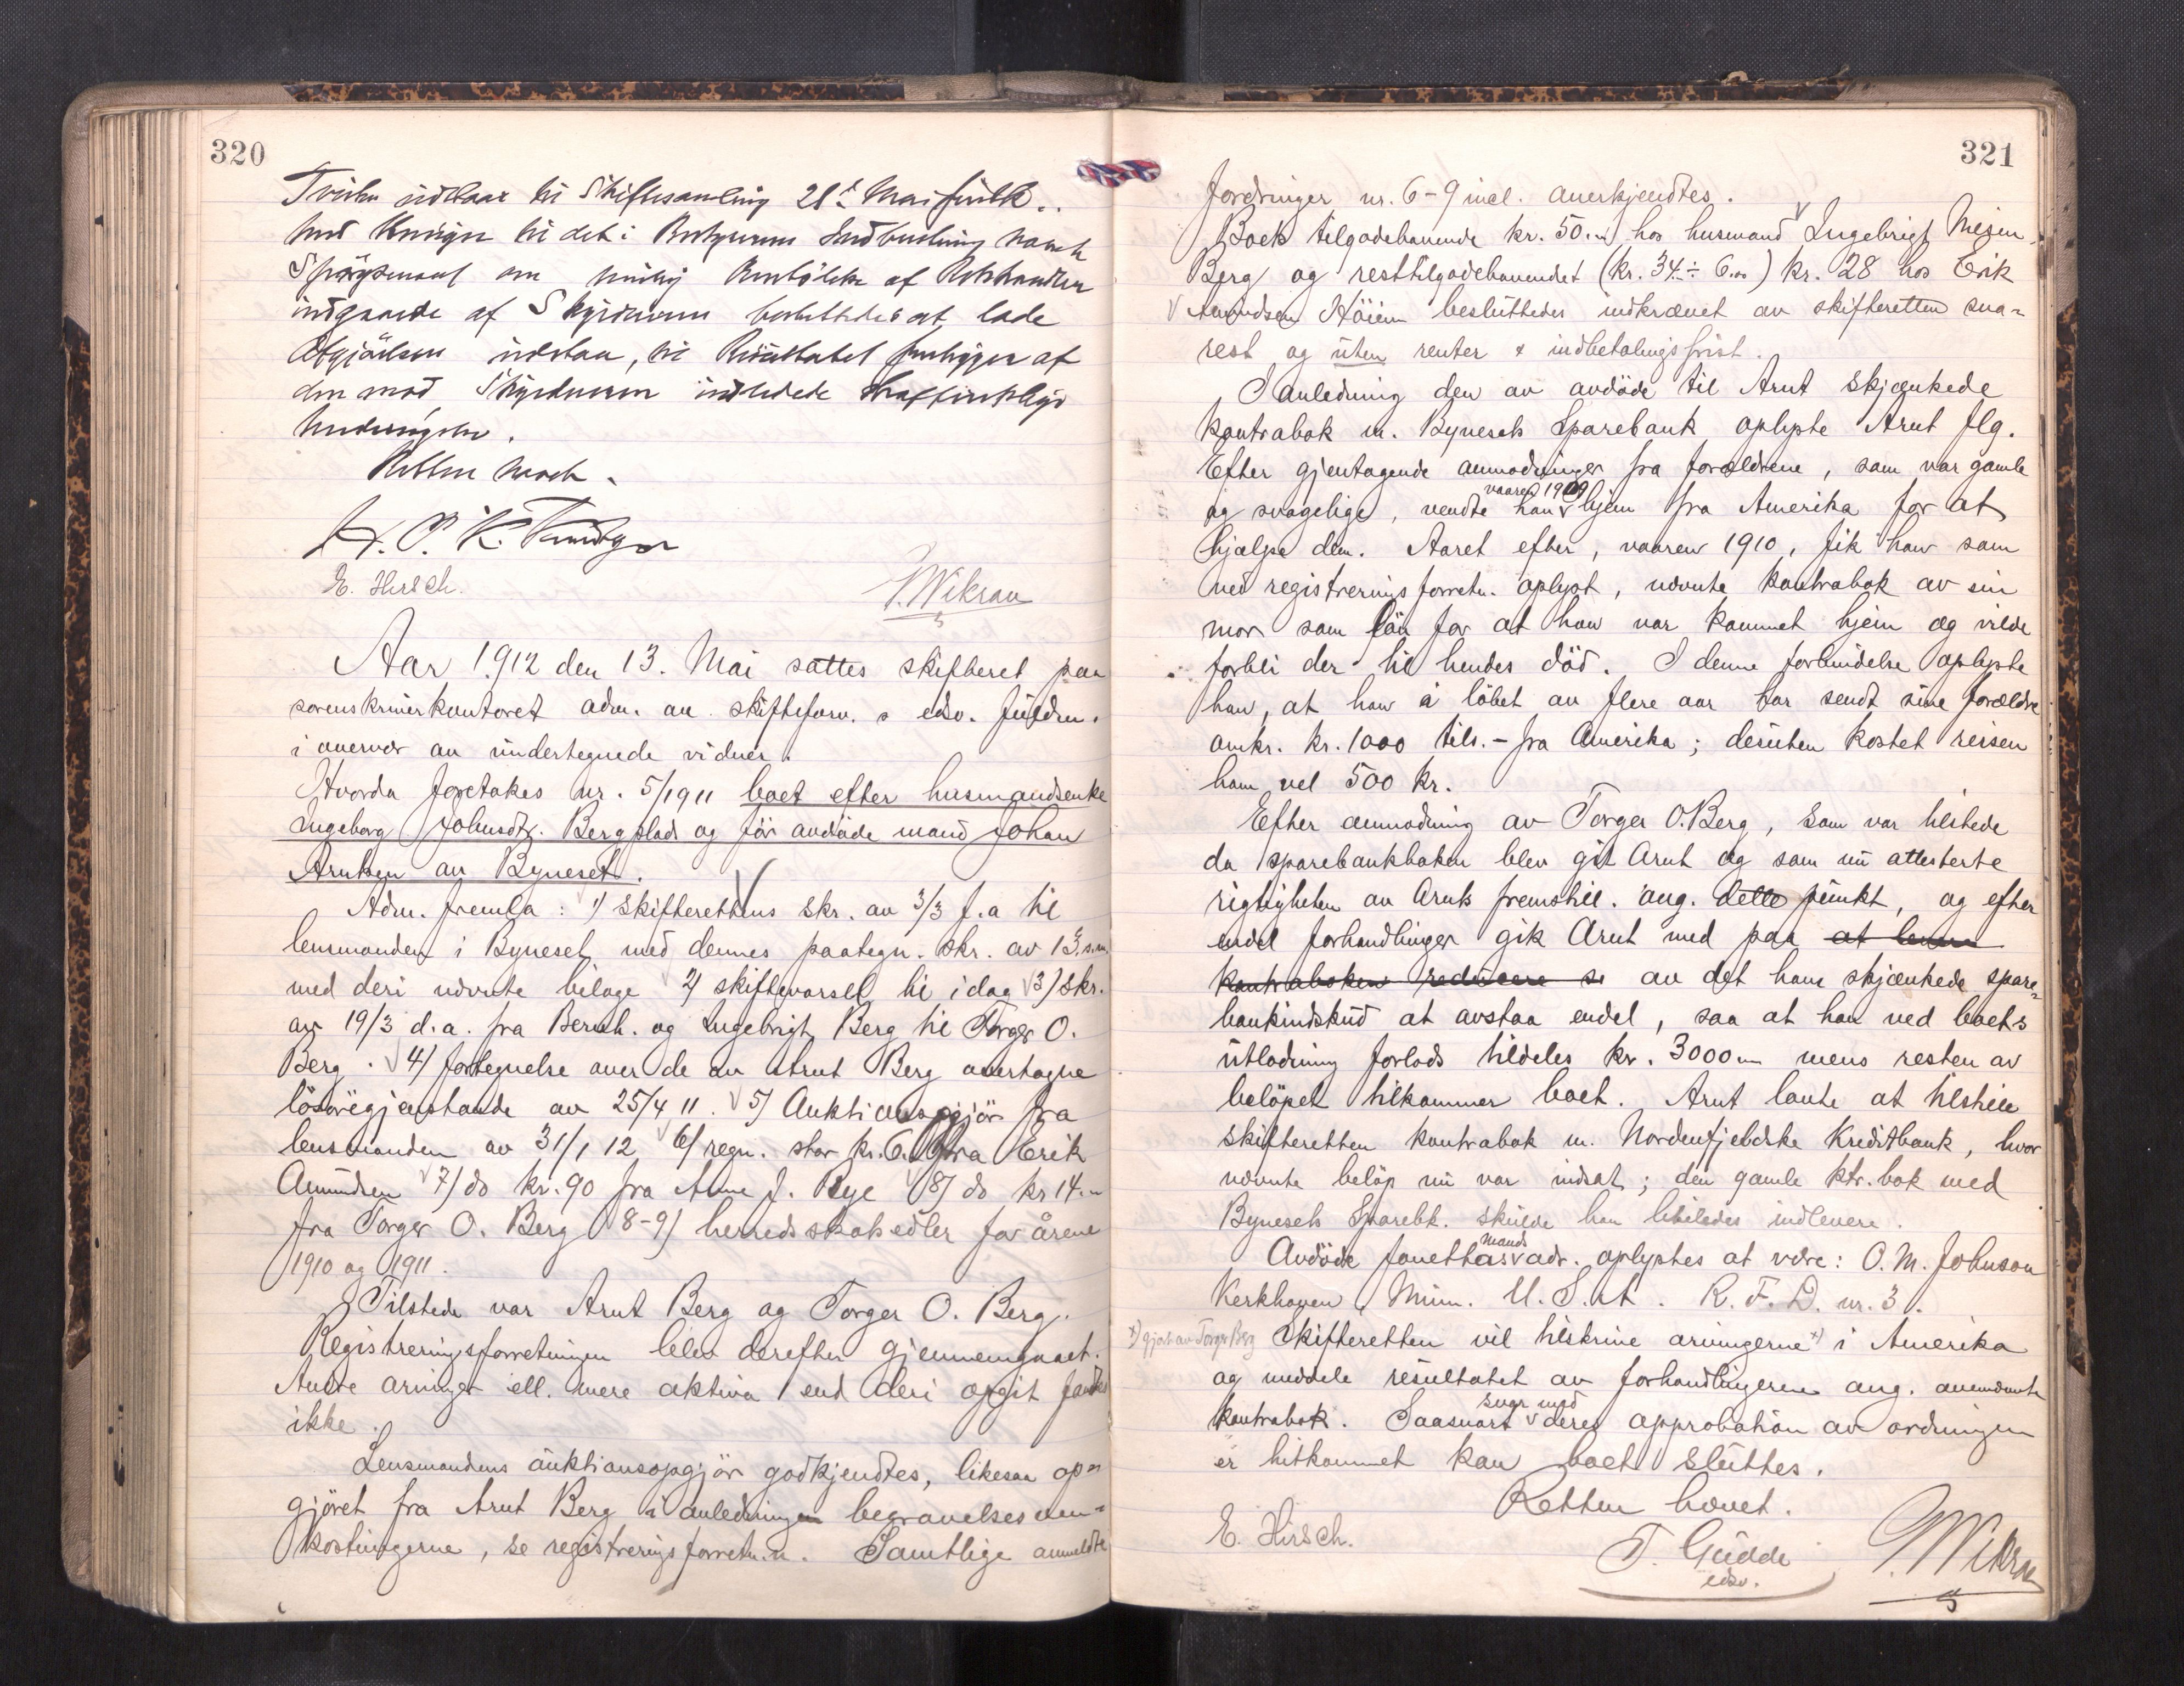 320
udstaar til Skiftesamling 21de Mai
med
Spørgsmaal om af
indgaaede af besluttedes at lade
Afgjørelsen udstaa, til Resultatet foreligger af
den mod indledede strafferetslige
Undersøgelse.
Retten hævet.
E. Hirsch.
J. Wikran
Aar 1912 den 13. Mai sattes skifteret paa
sorenskriverkontoret adm. av skifteforv. s edsv. fuldm.
i overvær av undertegnede vidner.
Hvorda foretokes nr. 5/1911 boet efter husmandsenke
Ingeborg Johnsdtr. Bergplads og før avdøde mand Johan
Arntsen av Byneset.
Adm. fremla: 1) skifterettens skr. av 3/3 f.a til
lensmanden i Byneset med dennes paategn. skr. av 13 s.m.
med deri nævnte bilage 2) skiftevarsel til idag 3) skr.
av 19/3 d.a. fra Bernh. og Ingebrigt Berg til Torger O.
Berg. 4) fortegnelse over de av Arnt Berg overtagne
løsøregjenstande av 25/4 11. 5) Auktionsopgjør fra
lensmanden av 31/1 12 6) regn. stor kr. 6.00 fra Erik
Amundsen 7) do kr. 90 fra Arne J. Rye 8) do kr 14.00
fra Torger O. Berg 8-9) herredsskatsedler for årene
1910 og 1911.
Tilstede var Arnt Berg og Torger O. Berg.
Registreringsforretningen blev derefter gjennemgaaet.
Andre arvinger ell. mere aktiva end deri opgit fandtes
ikke.
Lensmandens auktionsopgjør godkjendtes, likesaa op-
gjøret fra Arnt Berg i anledningen begravelsesom-
kostningerne, se registreringsforretn.n. Samtlige anmeldte
321
fordringer nr. 6-9 incl. anerkjendtes.
Boets tilgodehavende kr. 50.00 hos husmand Ingebrigt
Berg og resttilgodehavendet (kr. 34 ÷ 6.00) kr. 28 hos Erik
Amundsen Höiem besluttedes indkrævet av skifteretten sna-
rest og uten renter & indbetalingsfrist.
I anledning den av avdöde til Arnt skjænkede
kontrabok m. Bynesets Sparebank oplyste Arnt flg.
Efter gjentagende anmodninger fra forældrene, som var gamle
og svagelige, vendte han vaaren 1909 hjem fra Amerika for at
hjælpe dem. Aaret efter, vaaren 1910, fik han som
ved registreringsforretn. oplyst, nævnte kontrabok av sin
mor som lön for at han var kommet hjem og vilde
forbli der til hendes död. I denne forbindelse oplyste
han, at han i löbet av flere aar har sendt sine forældre
omkr. kr. 1000 tils. - fra Amerika; desuten kostet reisen
ham vel 500 kr.
Efter anmodning av Torger O. Berg, som var tilstede
da sparebankboken blev git Arnt og som nu attesterte
rigtigheten av Arnts fremstill. ang. dette punkt, og efter
endel forhandlinger gik Arnt med paa at levere
kontraboken reducere si av det ham skjænkede spare-
bankindskud at avstaa endel, saa at han ved boets
utlodning forlods tildeles kr. 3000.00 mens resten av
belöpet tilkommer boet. Arnt lovte at tilstille
skifteretten kontrabok m. Nordenfjeldske Kreditbank, hvor
nævnte belöp nu var indsat; den gamle ktr.bok med
Bynesets Sparebk. skulde han likeledes indlevere.
Avdöde Janettas mands adr. oplystes at være: O. M. Johnson
Kerkhoven, Minn. U.S.A. R.F.D. nr. 3.
x) gjort av Torger Berg Skifteretten vil tilskrive arvingerne x) i Amerika
og meddele resultatet av forhandlingerne ang. omnævnte
kontrabok. Saasnart svar med deres approbation av ordningen
er hitkommet kan boet sluttes.
Retten hævet.
E. Hirsch.
T. Gudde
edsv.
J. Wikran